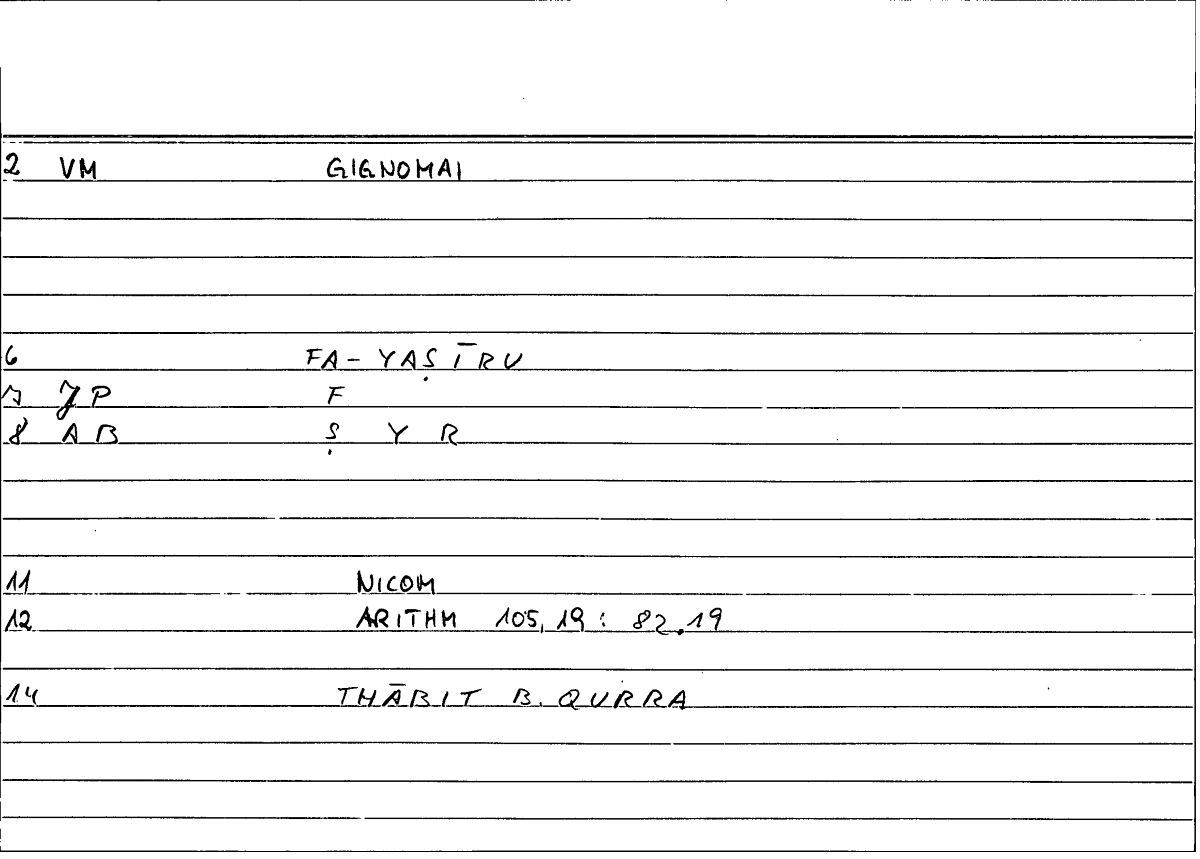 2 VM GIGNOMAI
6 FA-YAṢĪRU
7 JP F
8 AB Ṣ Y R
11 NICOM
12 ARITHM 105,19: 82.19
14 THĀBIT B. QURRA